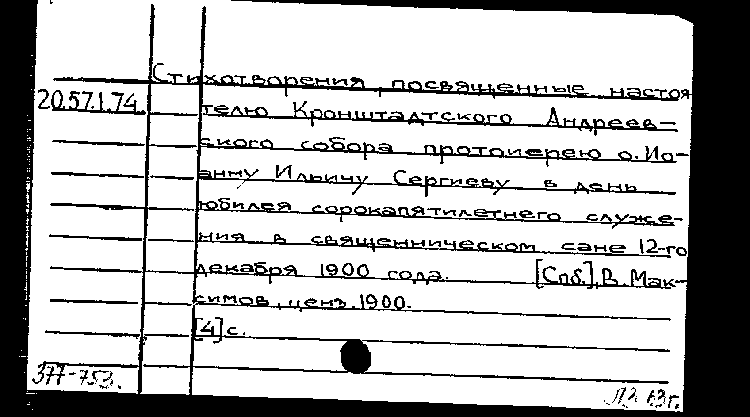 Стихотворения, посвященные настоя
20.57.1.74. телю Кронштадтского Андреев-
ского собора протоиерею о. Ио-
анну Ильичу Сергиеву в день
юбилея сорокапятилетнего служе-
ния в священническом сане 12-го
декабря 1900 года. [Спб.], В. Мак-
симов, ценз. 1900.
[4] с.
377-753.
ЛЗ 63 г.